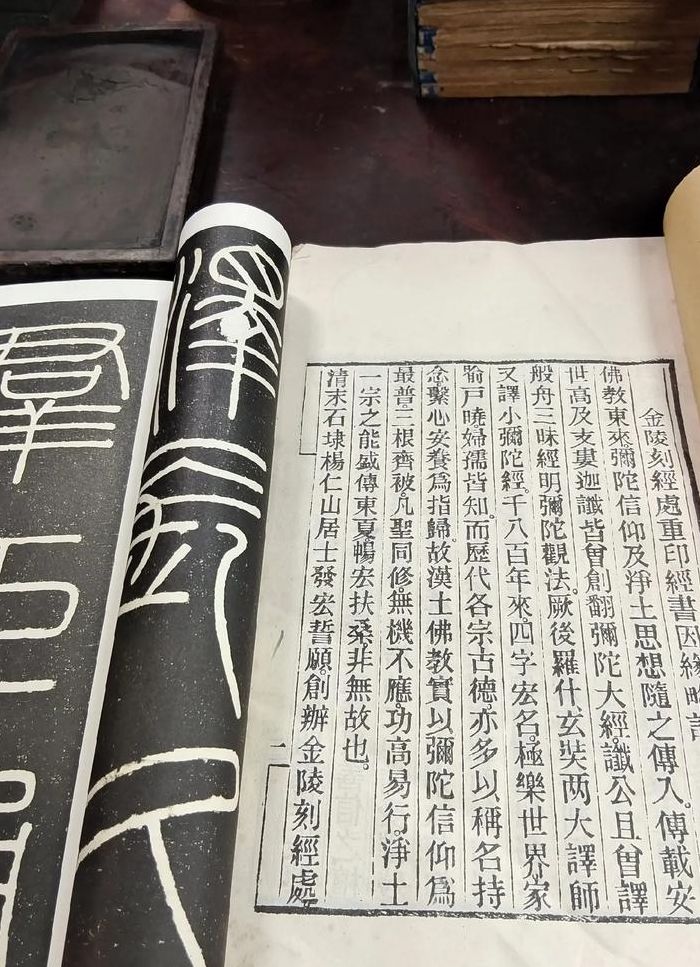 金陵刻經處重印經書因緣
佛教東來彌陀信仰及淨土思想隨之傳入。傳載安
世高及支婁迦讖皆曾創翻彌陀大經讖公且曾譯
般舟三昧經明彌陀觀法。厥後羅什玄奘两大譯師
又譯小彌陀經。千八百年來。四字宏名。極樂世界。家
喻戶曉婦孺皆知。而歷代各宗古德。亦多以稱名持
念繫心安養爲指歸。故漢土佛教實以彌陀信仰爲
最普。三根齊被。凡聖同修。無機不應。功高易行。淨土
一宗之能盛傳東夏。暢宏扶桑。非無故也。
清末石埭楊仁山居士發宏誓願。創辦金陵刻經處。
二
澤
群